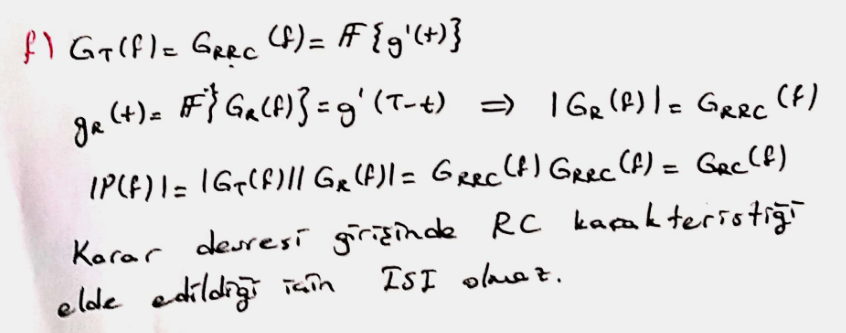 f) G_T(f) = G_RRC(f) = F{g'(t)}
g_R(t) = F⁻¹{G_R(f)} = g'(T-t) ⇒ |G_R(f)| = G_RRC(f)
|P(f)| = |G_T(f)||G_R(f)| = G_RRC(f) G_RRC(f) = G_RC(f)
Karar devresi girişinde RC karakteristiği
elde edildiği için ISI olmaz.